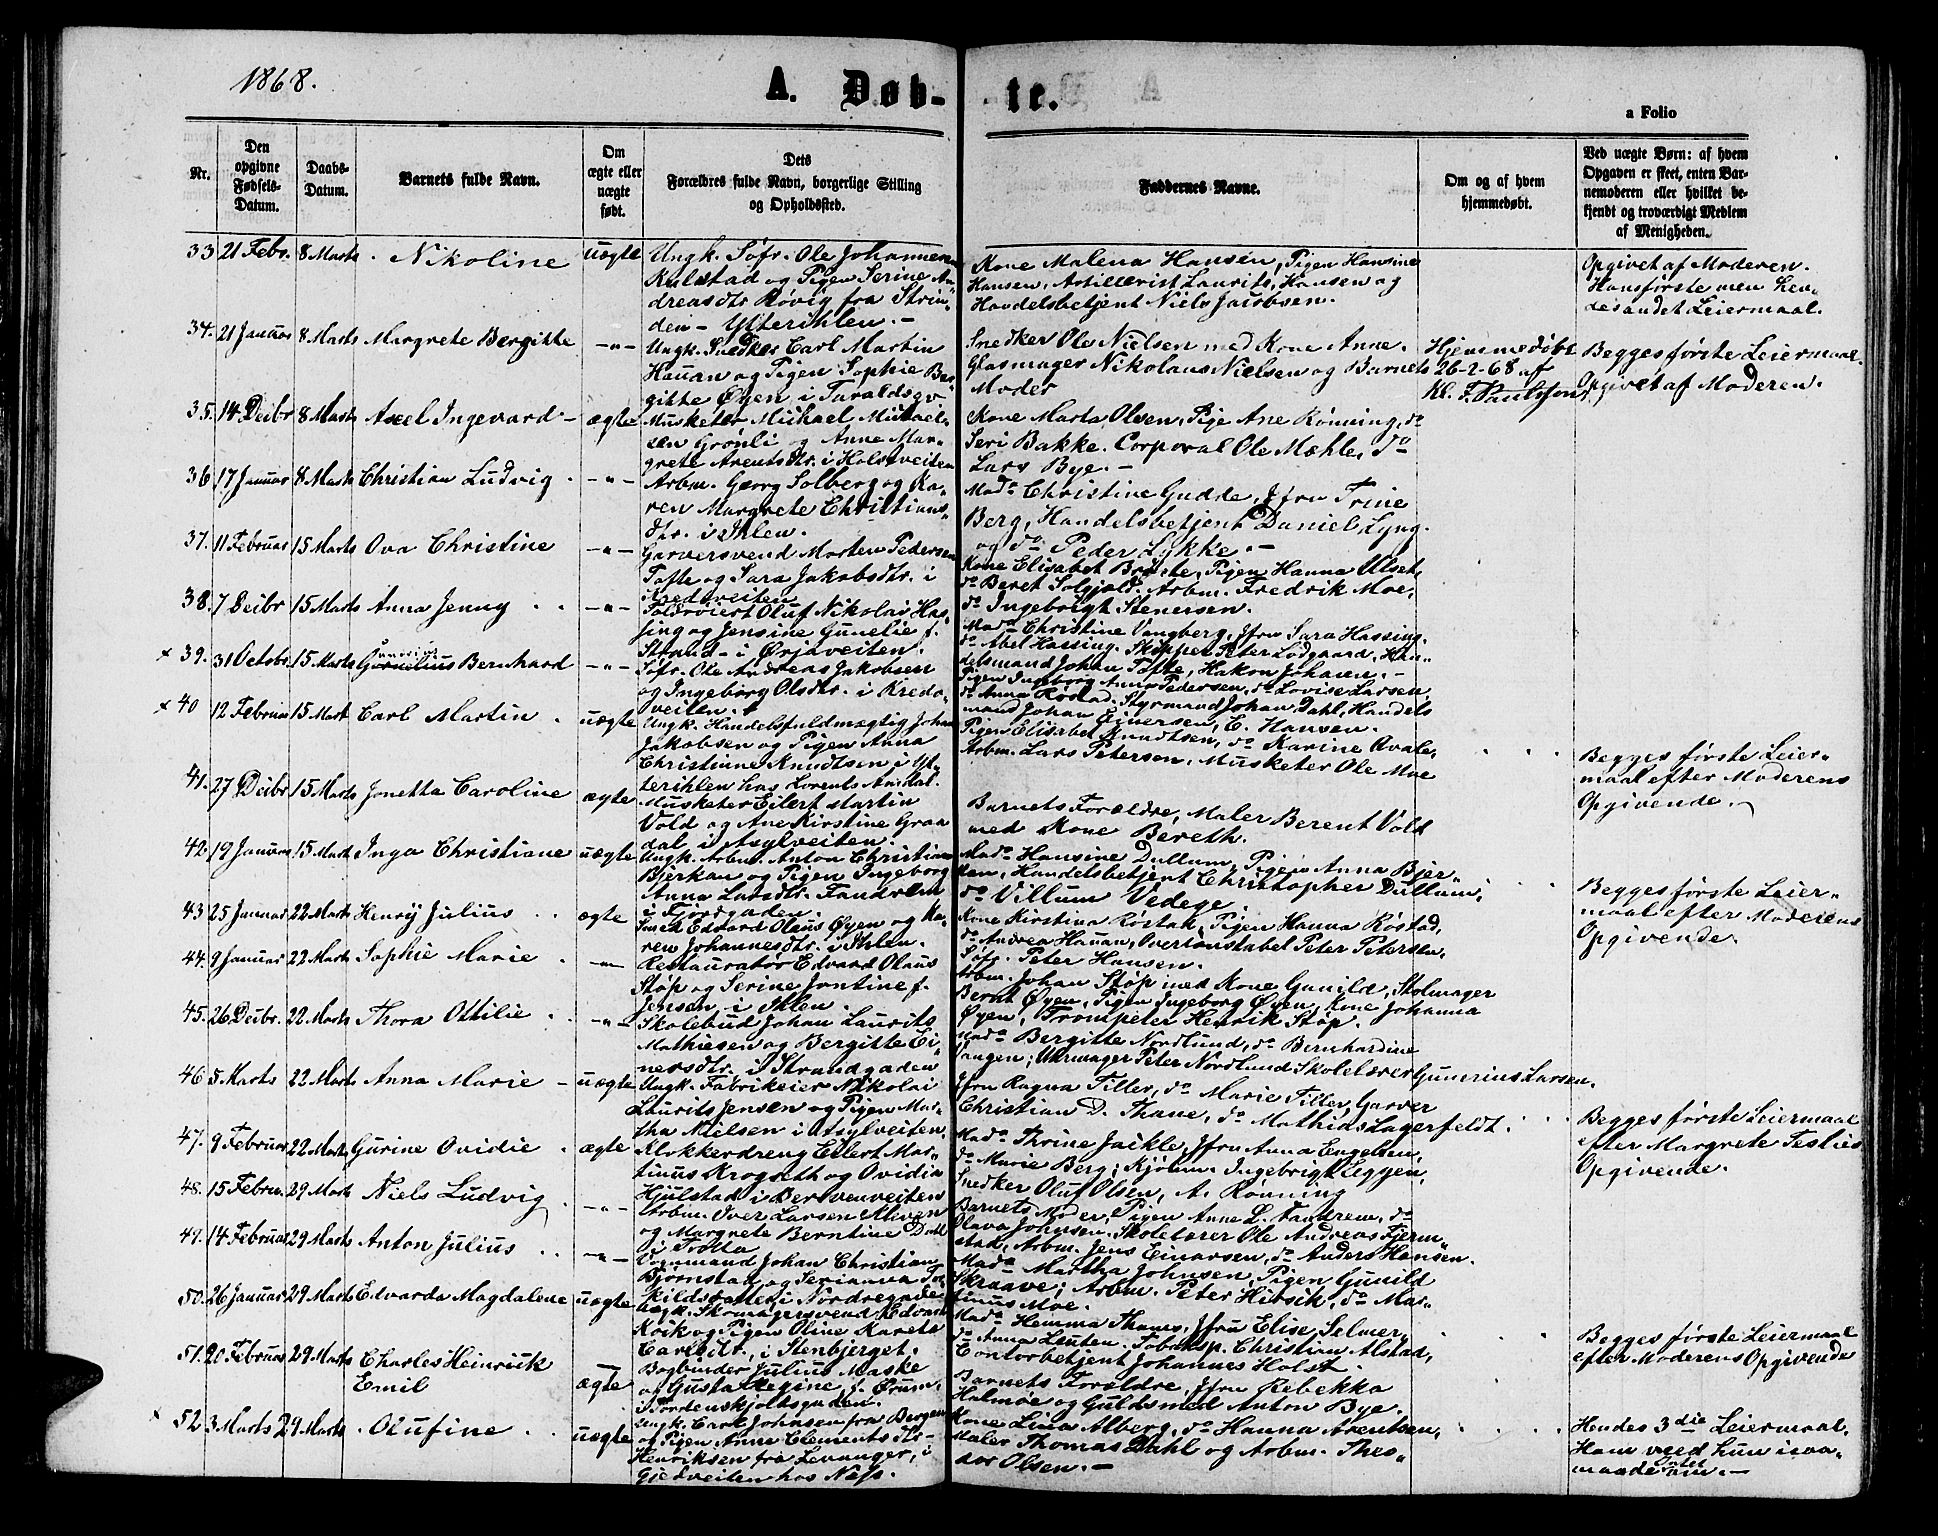 1868.
A. Døb-
te.
a Folio
Nr.
Den opgivne Fødsels-Datum.
Daabs-Datum.
Barnets fulde Navn.
Om ægte eller uægte født.
Dets Forældres fulde Navn, borgerlige Stilling og Opholdssted.
Faddernes Navne.
Om og af hvem hjemmedøbt.
Ved uægte Børn: af hvem Opgaven er skeet, enten Barnemoderen eller hvilket bekjendt og troværdigt Medlem af Menigheden.
33 21 Febr. 8 Marts Nikoline uægte
Ungk. Søfr. Ole Johannesen
Kulstad og Pigen Serine An-
dreasdtr Røvig fra Strin-
den - Ytterihlen. -
Kone Malena Hansen, Pigen Hansine
Hansen, Artillerist Laurits Hansen og
Handelsbetjent Niels Jacobsen.
Opgivet af Moderen.
Hans første men hen-
des andet Leiermaal.
34. 21 Januar 8 Marts Margrete Bergitte -"-
Ungk. Snedker Carl Martin
Hauan og Pigen Sophie Ber-
gitte Øyen i Taraldsgv
Snedker Ole Nielsen med Kone Anne.
Glasmager Nikolaus Nielsen og Barnets
Moder
Hjemmedøbt
26-2-68 af
Kl. F. Paulsson
Begges første Leiermaal
Opgivet af Moderen.
35. 14 Decbr 8 Marts Axel Ingevard - ægte
Musketer Michael Mikael-
sen Grønli og Anne Mar-
grete Arentsdtr. i Holstveiten
Kone Marta Olsen, Pige Ane Rønning, do
Seri Bakke. Corporal Ole Mæhle, do
Lars Bye. -
36 17 Januar 8 Marts Christian Ludvig -"-
Arbm. Georg Solberg og Ka-
ren Margrete Christians-
dtr. i Ihlen.
Mad. Christine Gudde, Jfru Trine
Berg, Handelsbetjent Daniel Lyng
og do Peder Lykke. -
37. 11 Februar 15 Marts Ova Christine -"-
Garversvend Morten Pedersen
Tofte og Sara Jakobsdtr. i
Kredsveiten
Kone Elisabet Brøste, Pigen Hanna Ulset,
do Beret Solgjald. Arbm. Fredrik Moe,
do Ingebrigt Stenersen.
38. 7 Decbr 15 Marts Anna Jenny -"-
Toldroiert Oluf Nikolai Has-
sing og Jensine Gunelie f.
Strand - i Ørjaveiten.
Mad. Christine Vangberg, Jfru Sara Hassing,
do Abel Hassing. Skipper Peter Lodgaard, Han-
delsmand Johan Tofte, Hakon Johansen. -
x 39. 31 Octobr 15 Marts Bernhard -"-
Søfr. Ole Andreas Jakobsen
og Ingeborg Olsdtr. i Kreds-
veiten.
Pigen Ingeborg Anna Pedersen, do Lovise Larsen,
do Anna Røstad. Styrmand Johan Dahl, Handels
mand Johan Einersen, E. Hansen.
x 40 12 Februar 15 Mart Carl Martin uægte
Ungk. Handelsfuldmægtig Johan
Jakobsen og Pigen Anna
Christiane Knudtsen i Yt-
terihlen hos Lorents
Pigen Elisabet Knudtsen, do Karine Qvale,
Arbm. Lars Petersen, Musketer Ole Moe
Begges første Leier-
maal efter Moderens
Opgivende.
41. 27 Decbr 15 Marts Jonetta Caroline ægte
Musketer Eilert Martin
Vold og Ane Kirstine Graa
dal i Asylveiten.
Barnets Forældre, Maler Berent Vold
med Kone Bereth.
42. 19 Januar 15 Mart Inga Christiane uægte
Ungk. Arbm. Anton Christian
Bjerkan og Pigen Ingeborg
Anna Larsdtr. Fandrem
i Fjordgaden.
Mad. Hansine Dullum, Pigen Anna Bjer-
ken, Handelsbetjent Christopher Dullum,
do Villum Vedege.
Begges første Leier-
maal efter Moderens
Opgivende.
43 25 Januar 22 Marts Henry Julius ægte
Smed Edvard Olaus Øyen og Ka-
ren Johannesdtr. i Ihlen.
Kone Kirstina Røstak, Pigen Hanna Røstad,
do Andrea Hauan, Overkonstabel Peter Petersen,
Søfr. Peter Hansen.
44. 9 Januar 22 Marts Sophie Marie -"-
Restauratør Edvard Olaus
Støp og Serine Jentine f.
Jensen i Ihlen.
Arbm. Johan Støp med Kone Gunild, Skomager
Bernt Øyen, Pigen Ingeborg Øyen, Kone Johanna
Øyen, Trompeter Henrik Støp.
45. 26 Decbr. 22 Marts Thora Ottilie -"-
Skolebud Johan Laurits
Mathiesen og Bergitte Ei-
nersdtr. i Strandgaden
Mad. Bergitte Nordlund, do Bernhardine
Vangen; Uhrmager Peter Nordlund Skolelærer Gunerius Larsen.
46 5 Marts 22 Marts Anna Marie - uægte
Ungk. Fabrikeier Nikolai
Laurits Jensen og Pigen Mar-
tha Nielsen i Asylveiten.
Jfru Ragna Tiller, do Marie Tiller, Garver
Christian D. Thane, do Mathias Lagerfeldt.
Begges første Leiermaal
efter Margrete Testies
Opgivende.
47. 9 Februar 22 Mart Gurine Ovidie ægte
Klokkerdreng Eilert Mar-
tinus Krogseth og Ovidia
Hjulstad i Dervenveiten
Mad. Thrine Jaikle, Jfru Anna Engelsen,
do Marie Berg; Kjøbm. Ingebrigt Leggen,
Snedker Oluf Olsen, A. Rønning
48. 15 Febru. 29 Mart Niels Ludvig -"-
Arbm. Over Larsen Alven
og Margrete Berntine Dahl
i Trolla
Barnets Moder, Pigen Anne L. Fandrem, do
Olava Johnsen. Skolelærer Ole Andreas Fjerm-
stad, Arbm. Jens Einarsen, do Anders Hansen.
49. 14 Februar 29 Marts Anton Julius -"-
Vognmand Johan Christian
Bjørnstad og Serianna Tor
kildsdatter i Nordregaden
Mad. Martha Johnsen, Pigen Gunild
Skraave; Arbm. Peter Hirsik, do Mar-
tinus Moe.
50. 26 Januar 29 Marts Edvarda Magdalene uægte
Ungk. Skomagersvend Edvard
Kvik og Pigen Oline Karete
Carlsdtr., i Stenbjerget.
Mad. Hemma Thams, Jfru Elise Selmer,
do Anna Leuten. Tobaksp. Christian Alstad,
Contorbetjent Johannes Holst.
Begges første Leiermaal
efter Moderens Opgivende
51. 20 Februar 29 Marts Charles Heinrick
Emil ægte
Bogbinder Julius Maske
og Gusta Regine f. Ørum,
i Tordenskjoldsgaden.
Barnets Forældre, Jfru Rebekka
Halmøe og Guldsmed Anton Bye.
x 52 3 Marts 29 Marts Olufine uægte
Ungk. Carl Johnsen fra Bergen
og Pigen Anne Clementsdtr-
Henriksen fra Levanger, i
Gjedveiten hos Næss.
Kone Lina Alberg, do Hanna Arentsen,
Maler Thomas Dahl og Arbm. Theo-
dor Olsen. -
Hendes 3die Leiermaal.
Ham veed hun
intet om. -